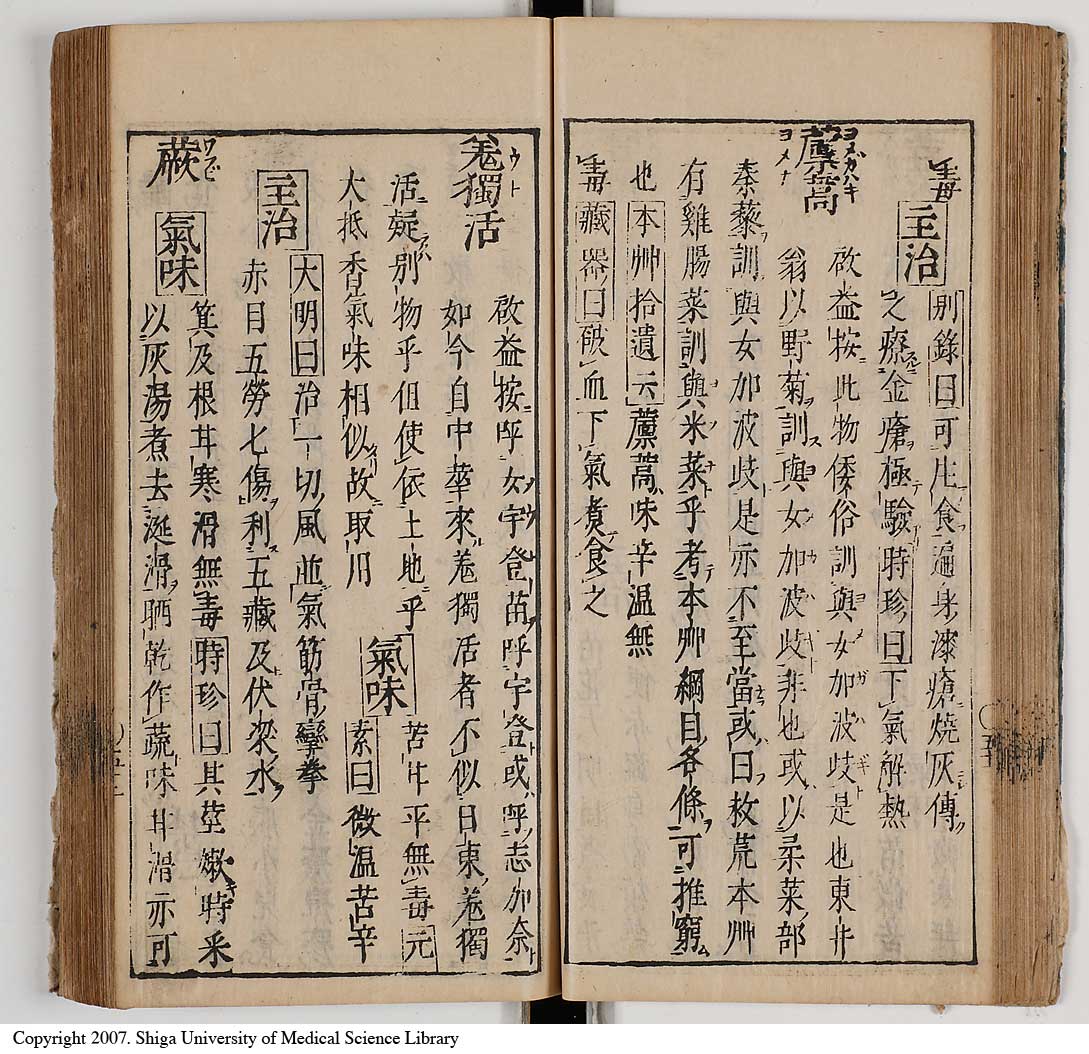 毒
主治 別錄曰可生食遍身漆瘡燒灰傳
之療金瘡極驗時珍曰下氣解熱
藁蒿 ヨメガハキ ヨメナ
啟益按此物倭俗訓與女加波歧是也東井
翁以野菊訓與女加波歧非也或以柔菜部
秦藜訓與女加波歧是亦不至當或曰救荒本艸
有雞腸菜訓與米菜乎考本艸綱目各條可推窮
也本艸拾遺云藁蒿味辛温無
毒藏器曰破血下氣煮食之
羗獨活 ウト
啟益按呼女宇登苗呼宇登或呼志加奈
如今自中華來羗獨活者不似日東羗獨
活疑別物乎但使依土地乎 氣味 苦甘平無毒元
大抵香氣味相似故取用 素曰微温苦辛
主治 大明曰治一切風並氣筋骨攣拳
赤目五勞七傷利五藏及伏梁水
蕨 ワラビ
氣味 箕及根甘寒滑無毒時珍曰其莖嫩時采
以灰湯煮去涎滑晒乾作蔬味甘滑亦可
Copyright 2007. Shiga University of Medical Science Library